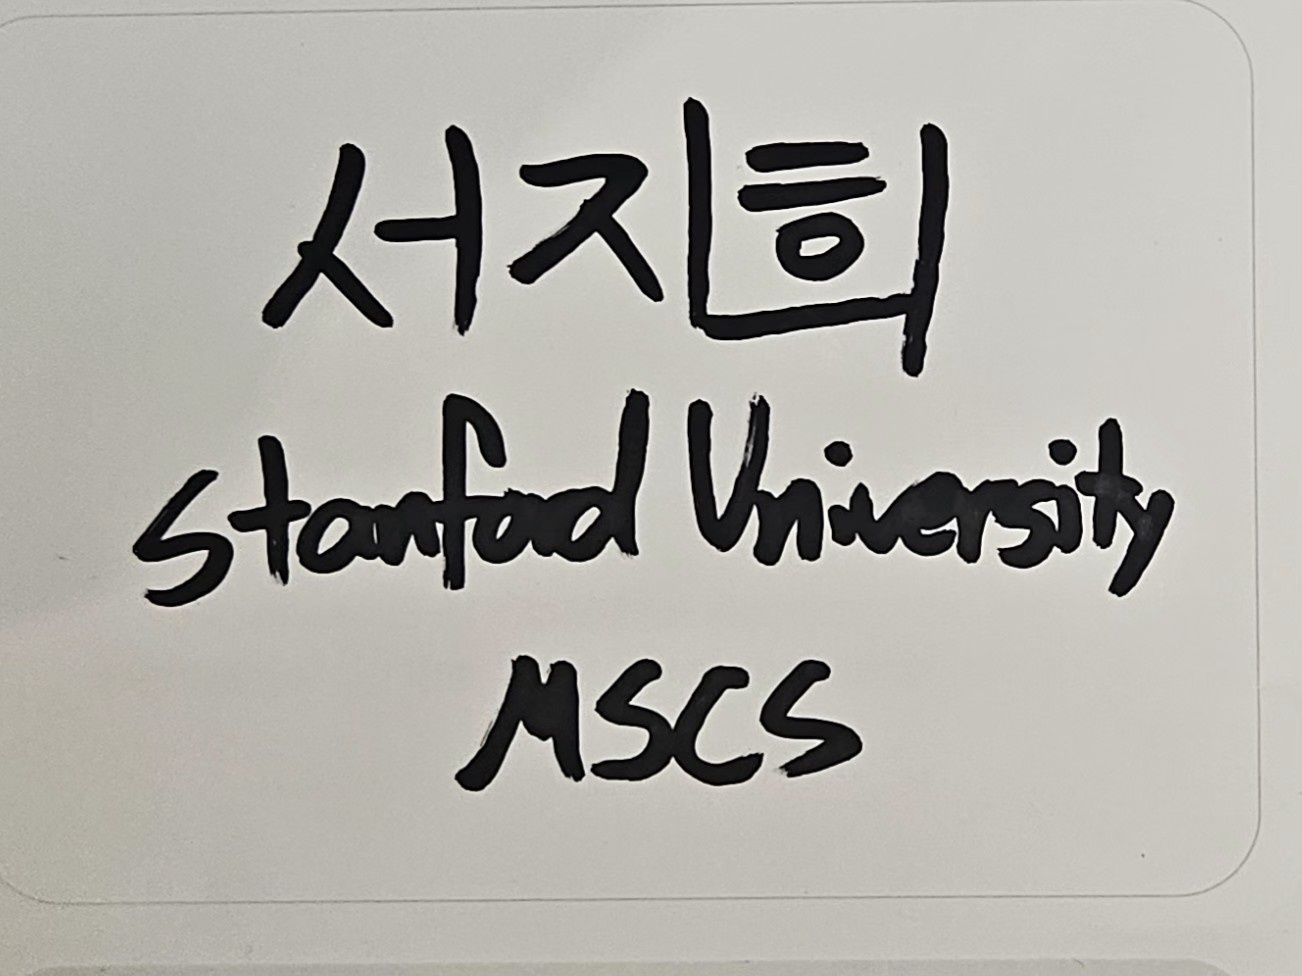 서지희
Stanford University
MSCS